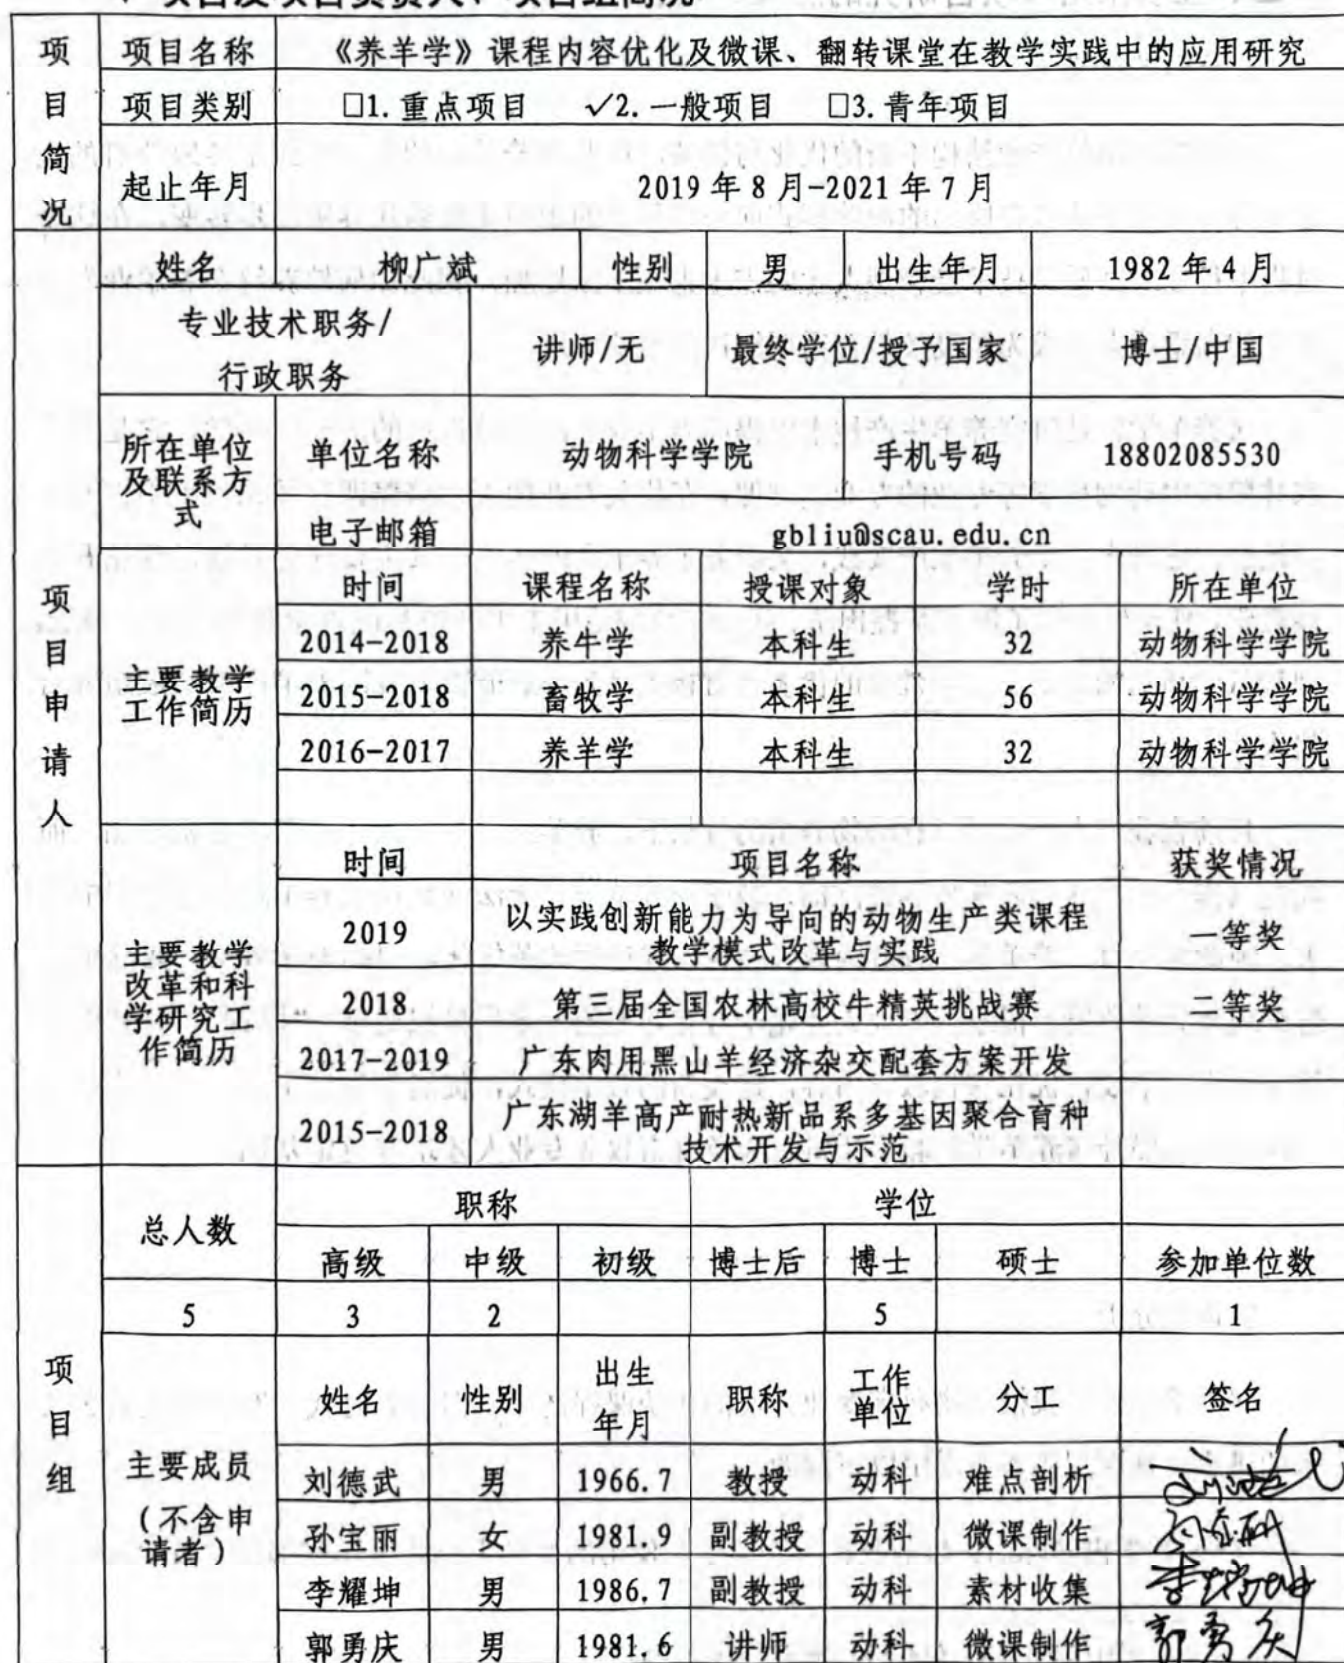 项目及项目负责人、项目组简况
项目简况
项目名称 《养羊学》课程内容优化及微课、翻转课堂在教学实践中的应用研究
项目类别 □1.重点项目 ✓2.一般项目 □3.青年项目
起止年月 2019年8月-2021年7月
项目申请人
姓名 柳广斌 性别 男 出生年月 1982年4月
专业技术职务/
行政职务
讲师/无 最终学位/授予国家 博士/中国
所在单位
及联系方
式
单位名称 动物科学学院 手机号码 18802085530
电子邮箱 gbliu@scau.edu.cn
主要教学
工作简历
时间 课程名称 授课对象 学时 所在单位
2014-2018 养牛学 本科生 32 动物科学学院
2015-2018 畜牧学 本科生 56 动物科学学院
2016-2017 养羊学 本科生 32 动物科学学院
主要教学
改革和科
学研究工
作简历
时间 项目名称 获奖情况
2019 以实践创新能力为导向的动物生产类课程
教学模式改革与实践 一等奖
2018 第三届全国农林高校牛精英挑战赛 二等奖
2017-2019 广东肉用黑山羊经济杂交配套方案开发
2015-2018 广东湖羊高产耐热新品系多基因聚合育种
技术开发与示范
项目组
总人数 职称 学位
高级 中级 初级 博士后 博士 硕士 参加单位数
5 3 2 5 1
主要成员
(不含申
请者)
姓名 性别 出生
年月 职称 工作
单位 分工 签名
刘德武 男 1966.7 教授 动科 难点剖析
孙宝丽 女 1981.9 副教授 动科 微课制作
李耀坤 男 1986.7 副教授 动科 素材收集 李耀坤
郭勇庆 男 1981.6 讲师 动科 微课制作 郭勇庆